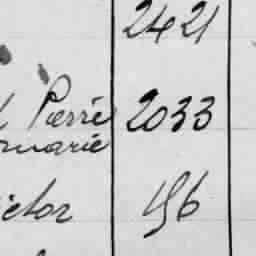 2421
Pierre 2033
marié
ictor 196